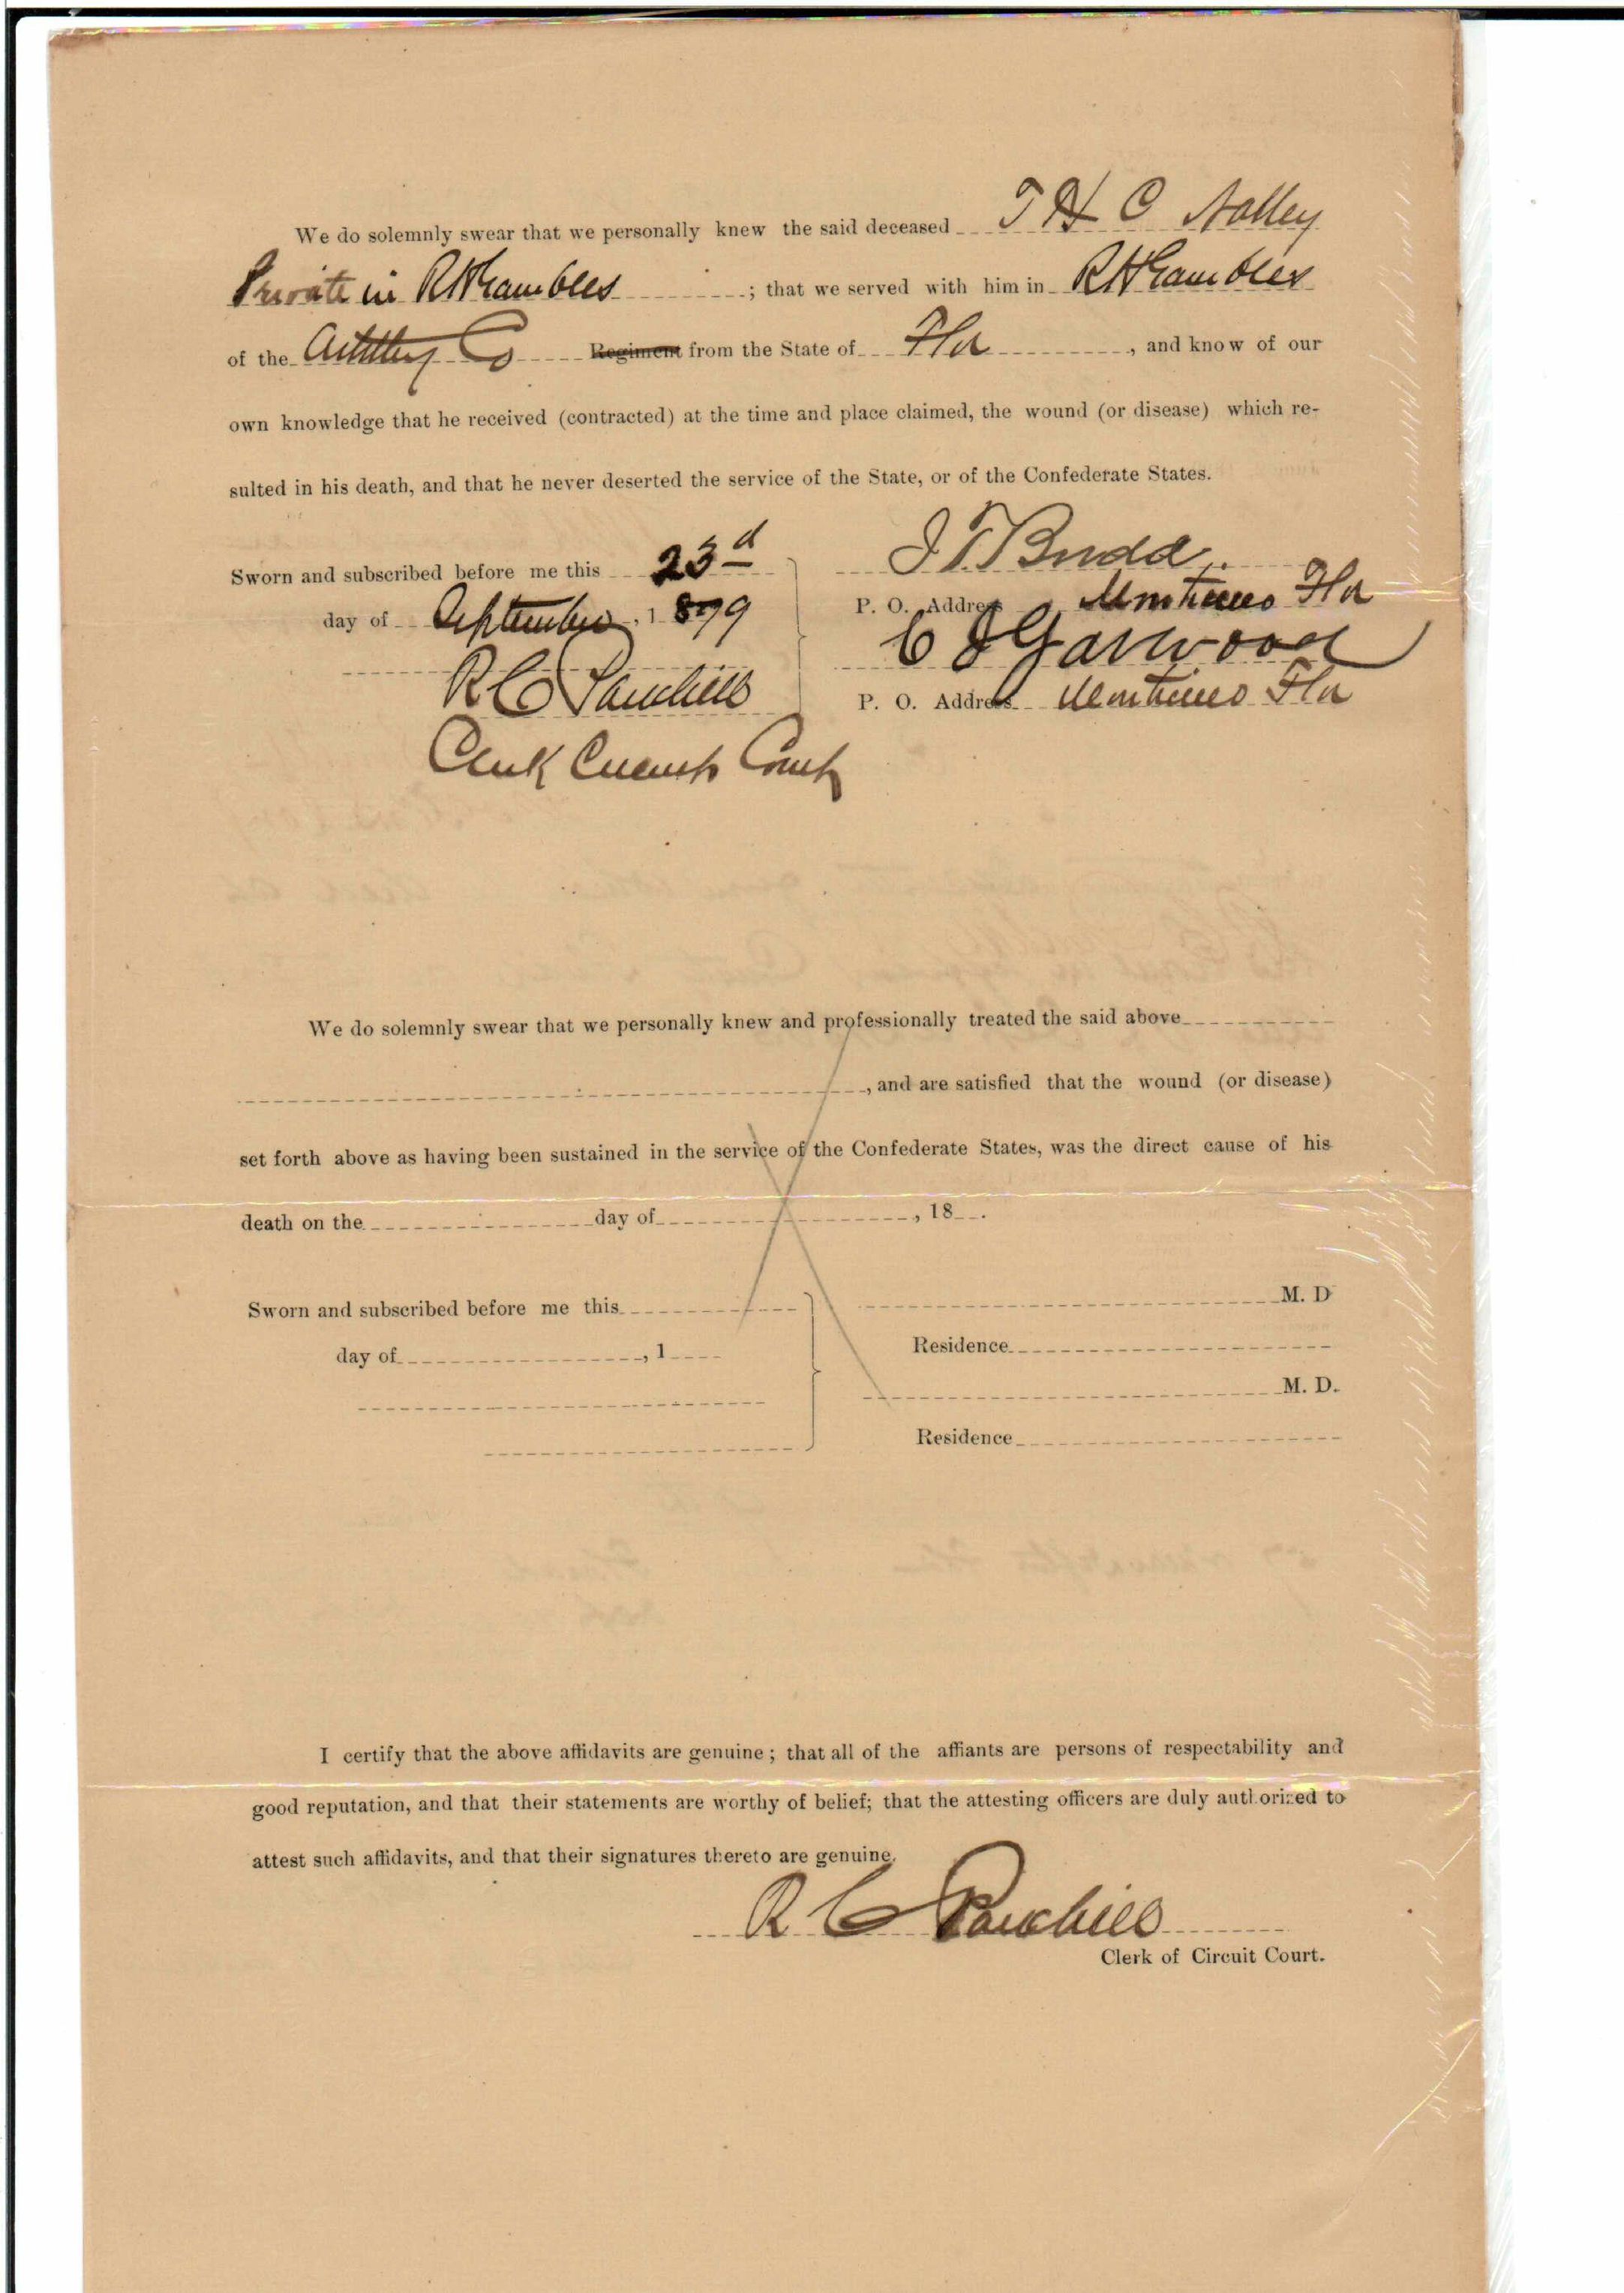 We do solemnly swear that we personally knew the said deceased T H C Nolley
Private in R H Gambles ; that we served with him in R H Gambles
of the Artillery Co Regiment from the State of Fla , and know of our
own knowledge that he received (contracted) at the time and place claimed, the wound (or disease) which re-
sulted in his death, and that he never deserted the service of the State, or of the Confederate States.
Sworn and subscribed before me this 23d
day of September, 1899
R C Parkhill
Clerk Circuit Court
J T Budd
P. O. Address Monticello Fla
C J Garwood
P. O. Address Monticello Fla
We do solemnly swear that we personally knew and professionally treated the said above
, and are satisfied that the wound (or disease)
set forth above as having been sustained in the service of the Confederate States, was the direct cause of his
death on the day of , 18 .
Sworn and subscribed before me this
day of , 1
M. D
Residence
M. D.
Residence
I certify that the above affidavits are genuine; that all of the affiants are persons of respectability and
good reputation, and that their statements are worthy of belief; that the attesting officers are duly authorized to
attest such affidavits, and that their signatures thereto are genuine.
R C Parkhill
Clerk of Circuit Court.